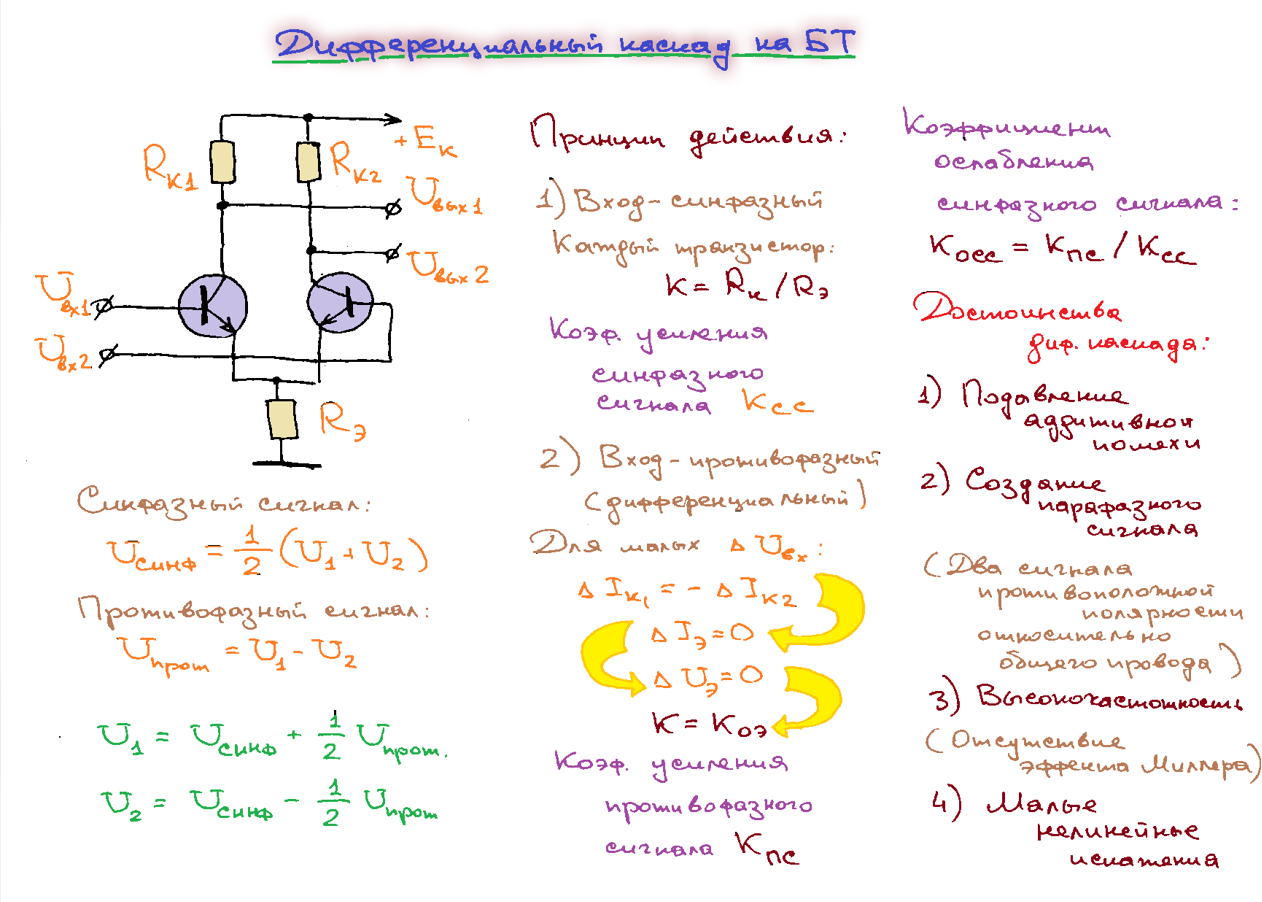 Дифференциальный каскад на БТ
+ Eк
Rк1
Rк2
Uвых1
Uвых2
Uвх1
Uвх2
Rэ
Синфазный сигнал:
Uсинф = 1/2 (U1 + U2)
Противофазный сигнал:
Uпрот = U1 - U2
U1 = Uсинф + 1/2 Uпрот.
U2 = Uсинф - 1/2 Uпрот
Принцип действия:
1) Вход - синфазный
Каждый транзистор:
K = Rк / Rэ
Коэф. усиления
синфазного
сигнала Kсс
2) Вход - противофазный
(дифференциальный)
Для малых Δ Uвх:
Δ Iк1 = - Δ Iк2
Δ Iэ = 0
Δ Uэ = 0
K = Kоэ
Коэф. усиления
противофазного
сигнала Kпс
Коэффициент
ослабления
синфазного сигнала:
Kосс = Kпс / Kсс
Достоинства
диф. каскада:
1) Подавление
аддитивной
помехи
2) Создание
парафазного
сигнала
(Два сигнала
противоположной
полярности
относительно
общего провода)
3) Высокочастотность
(Отсутствие
эффекта Миллера)
4) Малые
нелинейные
искажения